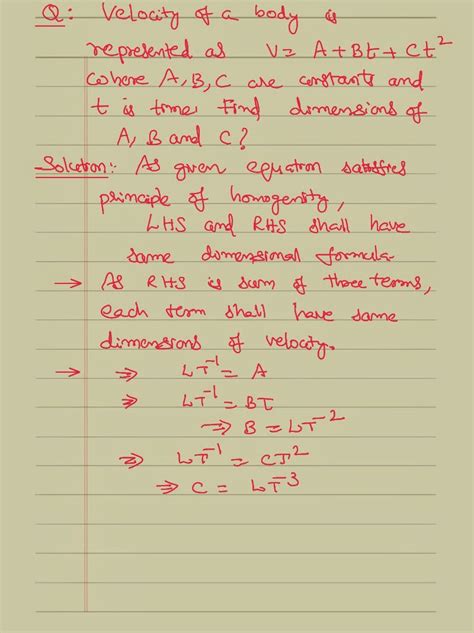 Q: Velocity of a body is
represented as V = A + Bt + Ct²
where A, B, C are constants and
t is time. Find dimensions of
A, B and C?
Solution:- As given equation satisfies
principle of homogenity,
LHS and RHS shall have
same dimensional formula.
→ As RHS is sum of three terms,
each term shall have same
dimensions of velocity.
→ ⇒ LT⁻¹ = A
⇒ LT⁻¹ = BT
⇒ B = LT⁻²
⇒ LT⁻¹ = CT²
⇒ C = LT⁻³